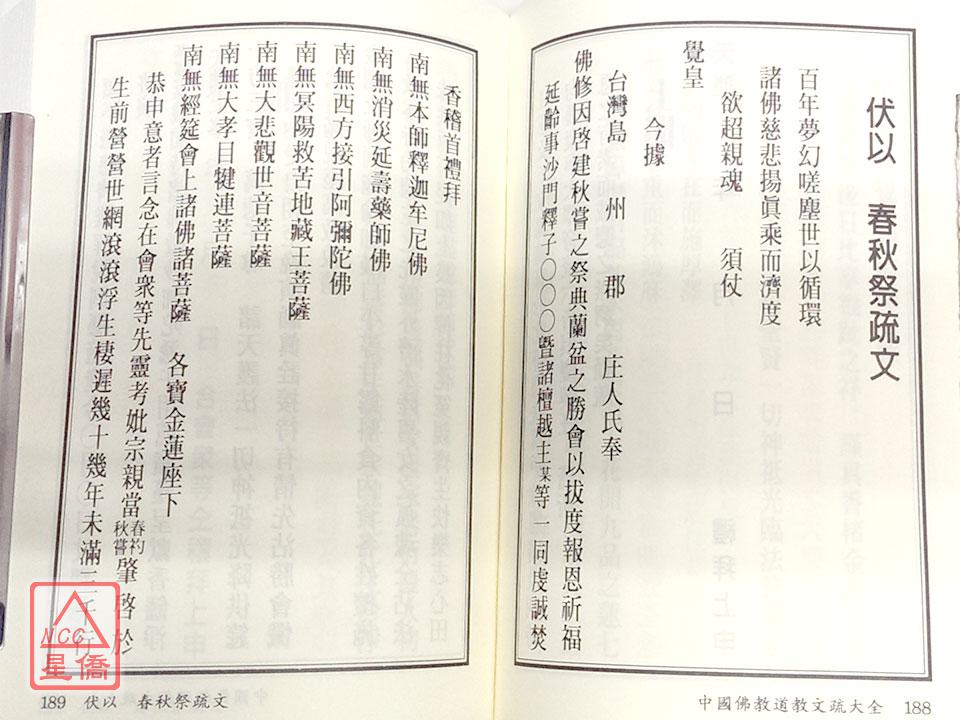 伏以 春秋祭疏文
百年夢幻嗟塵世以循環
諸佛慈悲揚眞乘而濟度
欲超親魂 須仗
覺皇
今據
台灣島 州 郡 庄人氏奉
佛修因啓建秋嘗之祭典蘭盆之勝會以拔度報恩祈福
延齡事沙門釋子○○○曁諸檀越主某等一同虔誠焚
中國佛教道教文疏大全 188
香稽首禮拜
南無本師釋迦牟尼佛
南無消災延壽藥師佛
南無西方接引阿彌陀佛
南無冥陽救苦地藏王菩薩
南無大悲觀世音菩薩
南無大孝目犍連菩薩
南無經延會上諸佛諸菩薩 各寶金蓮座下
恭申意者言念在會衆等先靈考妣宗親當春礿秋嘗肇啓於
生前營營世網滾滾浮生棲遲幾十幾年未滿三千行
189 伏以 春秋祭疏文
NCC
星僑